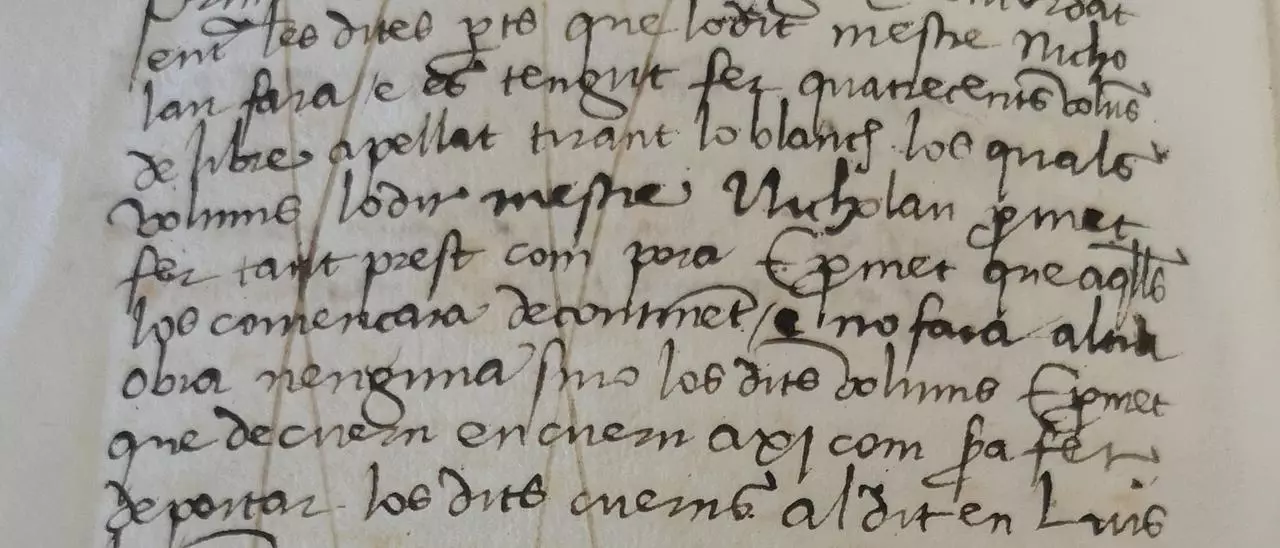 ent les dites pts que lodit mestre Nicho
lau fara / e es tengut fer quatrecents volums
de libre apellat tirant lo blanch los quals
volums lodit mestre Nicholau pmet
fer tant prest com pora E pmet que aqlls
los comencara decontinet / e no fara altra
obra nenguna sino los dits volums E pmet
que de cuern en cuern axi com sra fet
de portar los dits cuerns al dit en Luis